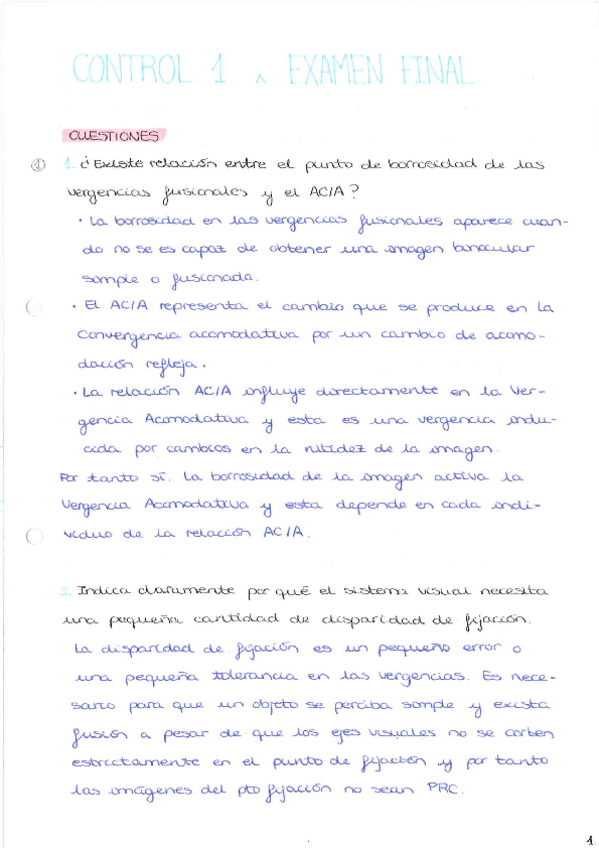 CONTROL 1 ^ EXAMEN FINAL
CUESTIONES
① 1. ¿Existe relación entre el punto de borrosidad de las
vergencias fusionales y el AC/A?
· La borrosidad en las vergencias fusionales aparece cuan-
do no se es capaz de obtener una imagen binocular
simple o fusionada.
· El AC/A representa el cambio que se produce en la
Convergencia acomodativa por un cambio de acomo-
dación refleja.
· La relación AC/A influye directamente en la Ver-
gencia Acomodativa y esta es una vergencia indu-
cida por cambios en la nitidez de la imagen.
Por tanto sí. La borrosidad de la imagen activa la
Vergencia Acomodativa y esta depende en cada indi-
viduo de la relación AC/A.
2. Indica claramente por qué el sistema visual necesita
una pequeña cantidad de disparidad de fijación.
La disparidad de fijación es un pequeño error o
una pequeña tolerancia en las vergencias. Es nece-
sario para que un objeto se perciba simple y exista
fusión a pesar de que los ejes visuales no se corten
estrictamente en el punto de fijación y por tanto
las imágenes del pto fijación no sean PRC.
1